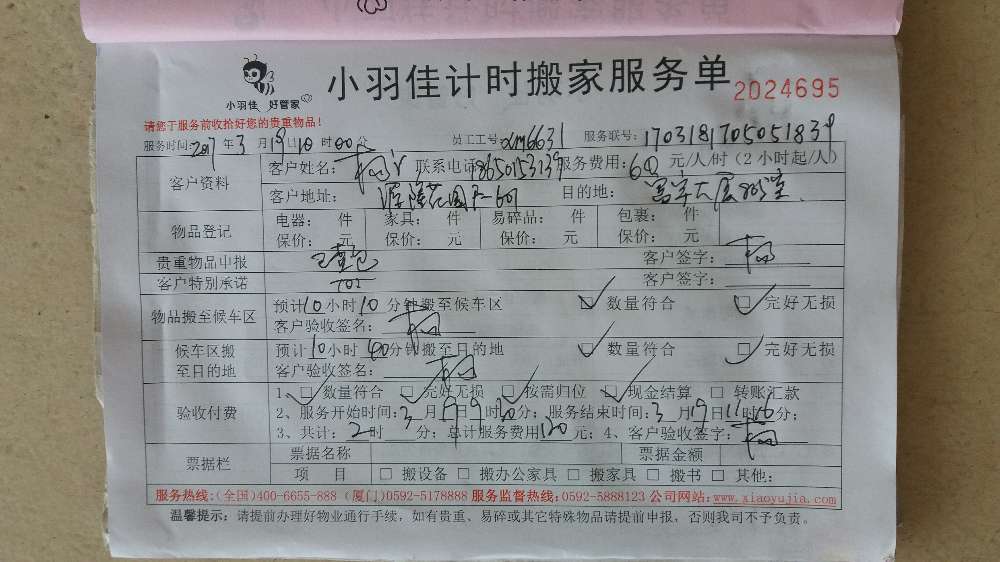 小羽佳 好管家
小羽佳计时搬家服务单
2024695
请您于服务前收拾好您的贵重物品!
服务时间:2017年3月19日10时00分 员工工号: 6631 服务联号:1703181705051839
客户资料
客户姓名: 联系电话18650153139 服务费用:60元/人/时(2小时起/人)
客户地址: 目的地:
物品登记
电器: 件 家具: 件 易碎品: 件 包裹: 件
保价: 元 保价: 元 保价: 元 保价: 元
贵重物品申报 客户签字:
客户特别承诺 客户签字:
物品搬至候车区
预计10小时10分钟搬至候车区 数量符合 完好无损
客户验收签名:
候车区搬至目的地
预计10小时40分钟搬至目的地 数量符合 完好无损
客户验收签名:
验收付费
1、数量符合 完好无损 按需归位 现金结算 转账汇款
2、服务开始时间:3月19日9时20分;服务结束时间:3月19日11时16分;
3、共计:2时 分;总计服务费用120元;4、客户验收签字:
票据栏
票据名称 票据金额
项 目 搬设备 搬办公家具 搬家具 搬书 其他:
服务热线:(全国)400-6655-888 (厦门)0592-5178888 服务监督热线:0592-5888123 公司网站:www.xiaoyujia.com
温馨提示:请提前办理好物业通行手续,如有贵重、易碎或其它特殊物品请提前申报,否则我司不予负责。